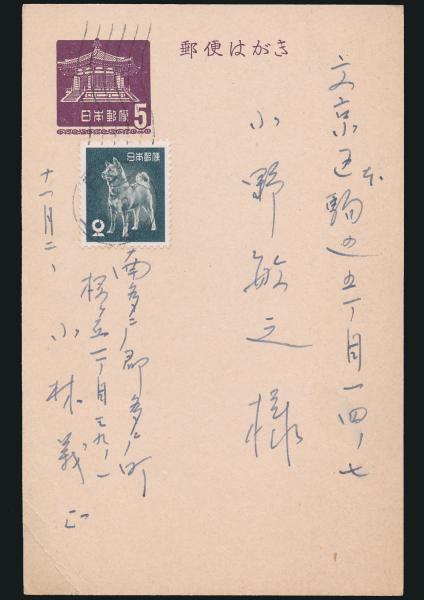 郵便はがき
日本郵便
5
日本郵便
2
文京区本駒込五丁目一四ノ七
小野敏之様
十一月二、
南多摩郡多摩町
桜ヶ丘一丁目三九ノ一
小林義正